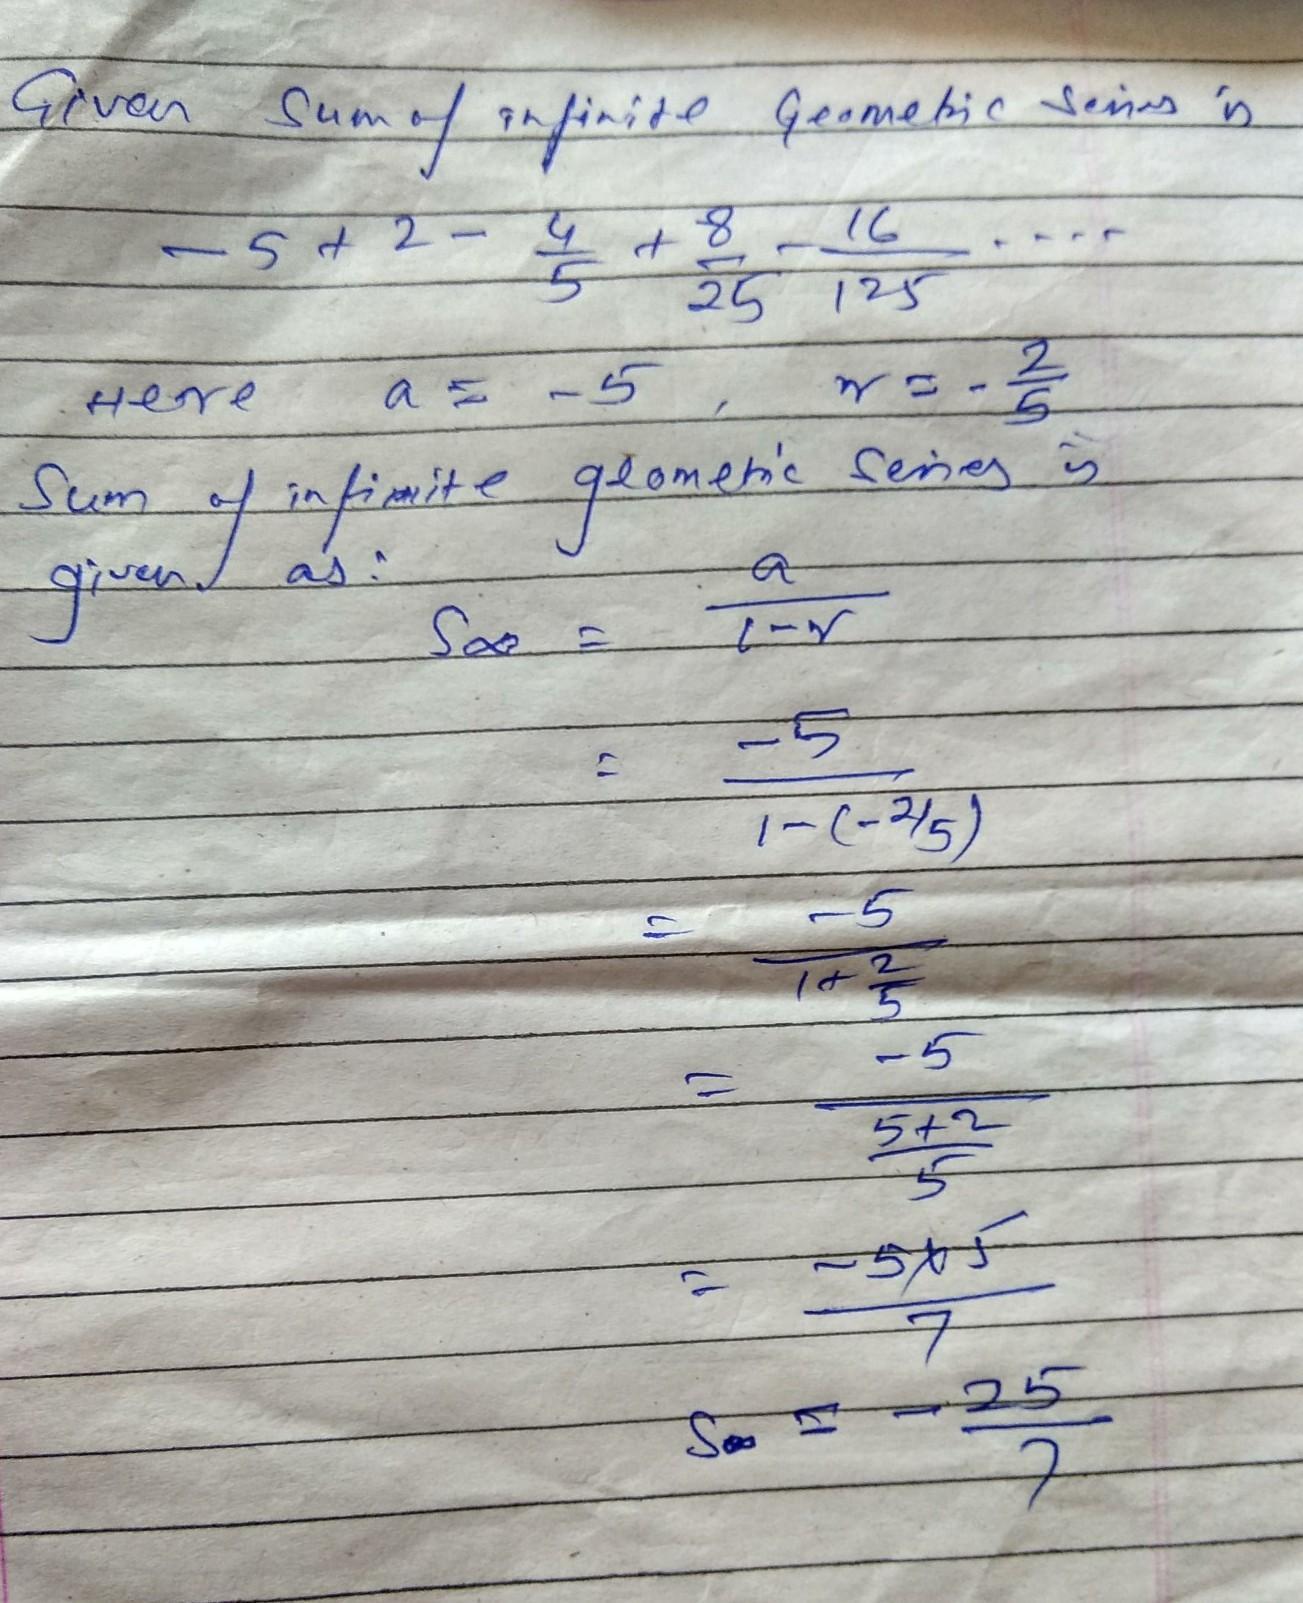 Given Sum of infinite Geometric Series is
- 5 + 2 - 4/5 + 8/25 - 16/125 .....
Here a = -5, r = -2/5
Sum of infinite geometric Series is
given as:
S∞ = a/(1-r)
= -5/(1-(-2/5))
= -5/(1+2/5)
= -5/((5+2)/5)
= (-5×5)/7
S∞ = -25/7